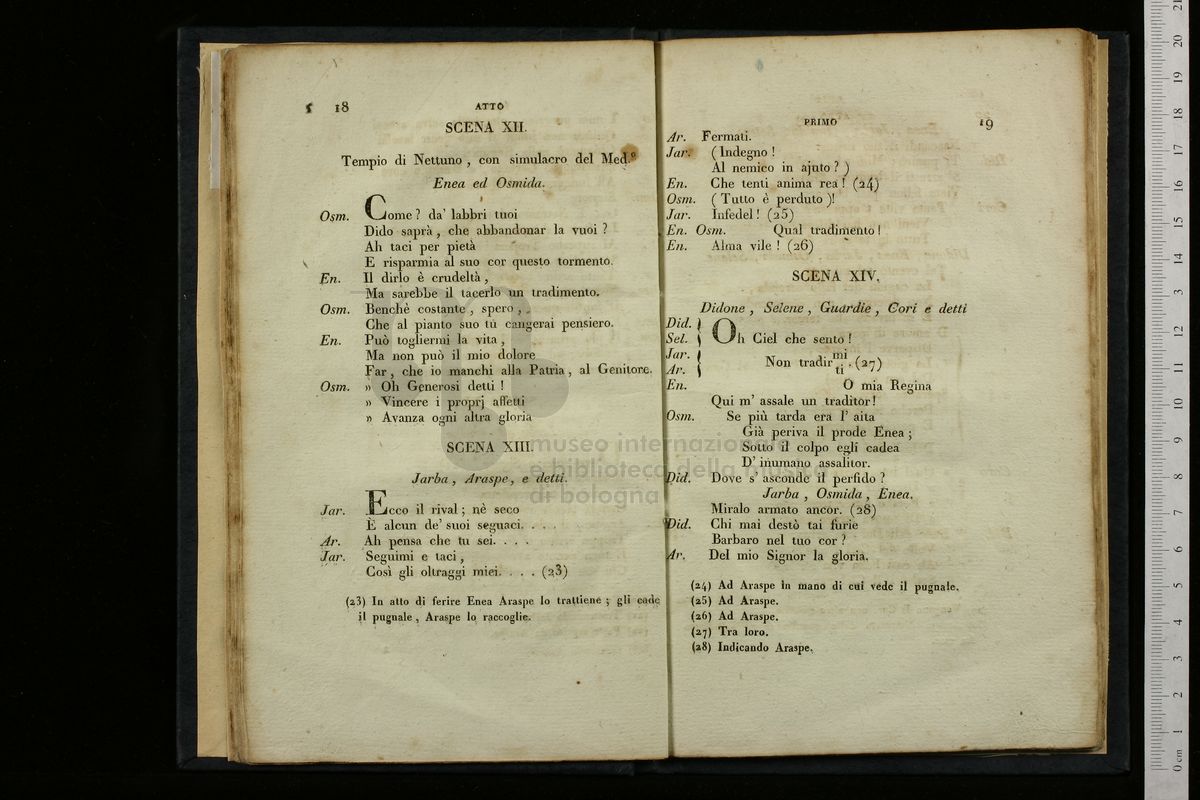 18
ATTO
SCENA XII.
Tempio di Nettuno , con simulacro del Med.º
Enea ed Osmida.
Osm. Come ? da' labbri tuoi
Dido saprà , che abbandonar la vuoi ?
Ah taci per pietà
E risparmia al suo cor questo tormento.
En. Il dirlo è crudeltà ,
Ma sarebbe il tacerlo un tradimento.
Osm. Benchè costante , spero ,
Che al pianto suo tù cangerai pensiero.
En. Può togliermi la vita ,
Ma non può il mio dolore
Far , che io manchi alla Patria , al Genitore.
Osm. » Oh Generosi detti !
» Vincere i proprj affetti
» Avanza ogni altra gloria
SCENA XIII.
Jarba , Araspe, e detti.
Jar. Ecco il rival ; nè seco
È alcun de' suoi seguaci. . . .
Ar. Ah pensa che tu sei. . . .
Jar. Seguimi e taci ,
Così gli oltraggi miei. . . . (23)
(23) In atto di ferire Enea Araspe lo trattiene ; gli cade
il pugnale , Araspe lo raccoglie.
PRIMO
19
Ar. Fermati.
Jar. ( Indegno !
Al nemico in ajuto ? )
En. Che tenti anima rea ! (24)
Osm. ( Tutto è perduto )!
Jar. Infedel ! (25)
En. Osm. Qual tradimento !
En. Alma vile ! (26)
SCENA XIV.
Didone , Selene , Guardie , Cori e detti
Did.
Sel. Oh Ciel che sento !
Jar.
Ar. Non tradirmi ti . (27)
En. O mia Regina
Qui m' assale un traditor !
Osm. Se più tarda era l' aita
Già periva il prode Enea ;
Sotto il colpo egli cadea
D' inumano assalitor.
Did. Dove s' asconde il perfido ?
Jarba , Osmida , Enea.
Miralo armato ancor. (28)
Did. Chi mai destò tai furie
Barbaro nel tuo cor ?
Ar. Del mio Signor la gloria.
(24) Ad Araspe in mano di cui vede il pugnale.
(25) Ad Araspe.
(26) Ad Araspe.
(27) Tra loro.
(28) Indicando Araspe.
museo internazionale
e biblioteca della musica
di bologna
0 cm 1 2 3 4 5 6 7 8 9 10 11 12 13 14 15 16 17 18 19 20 21